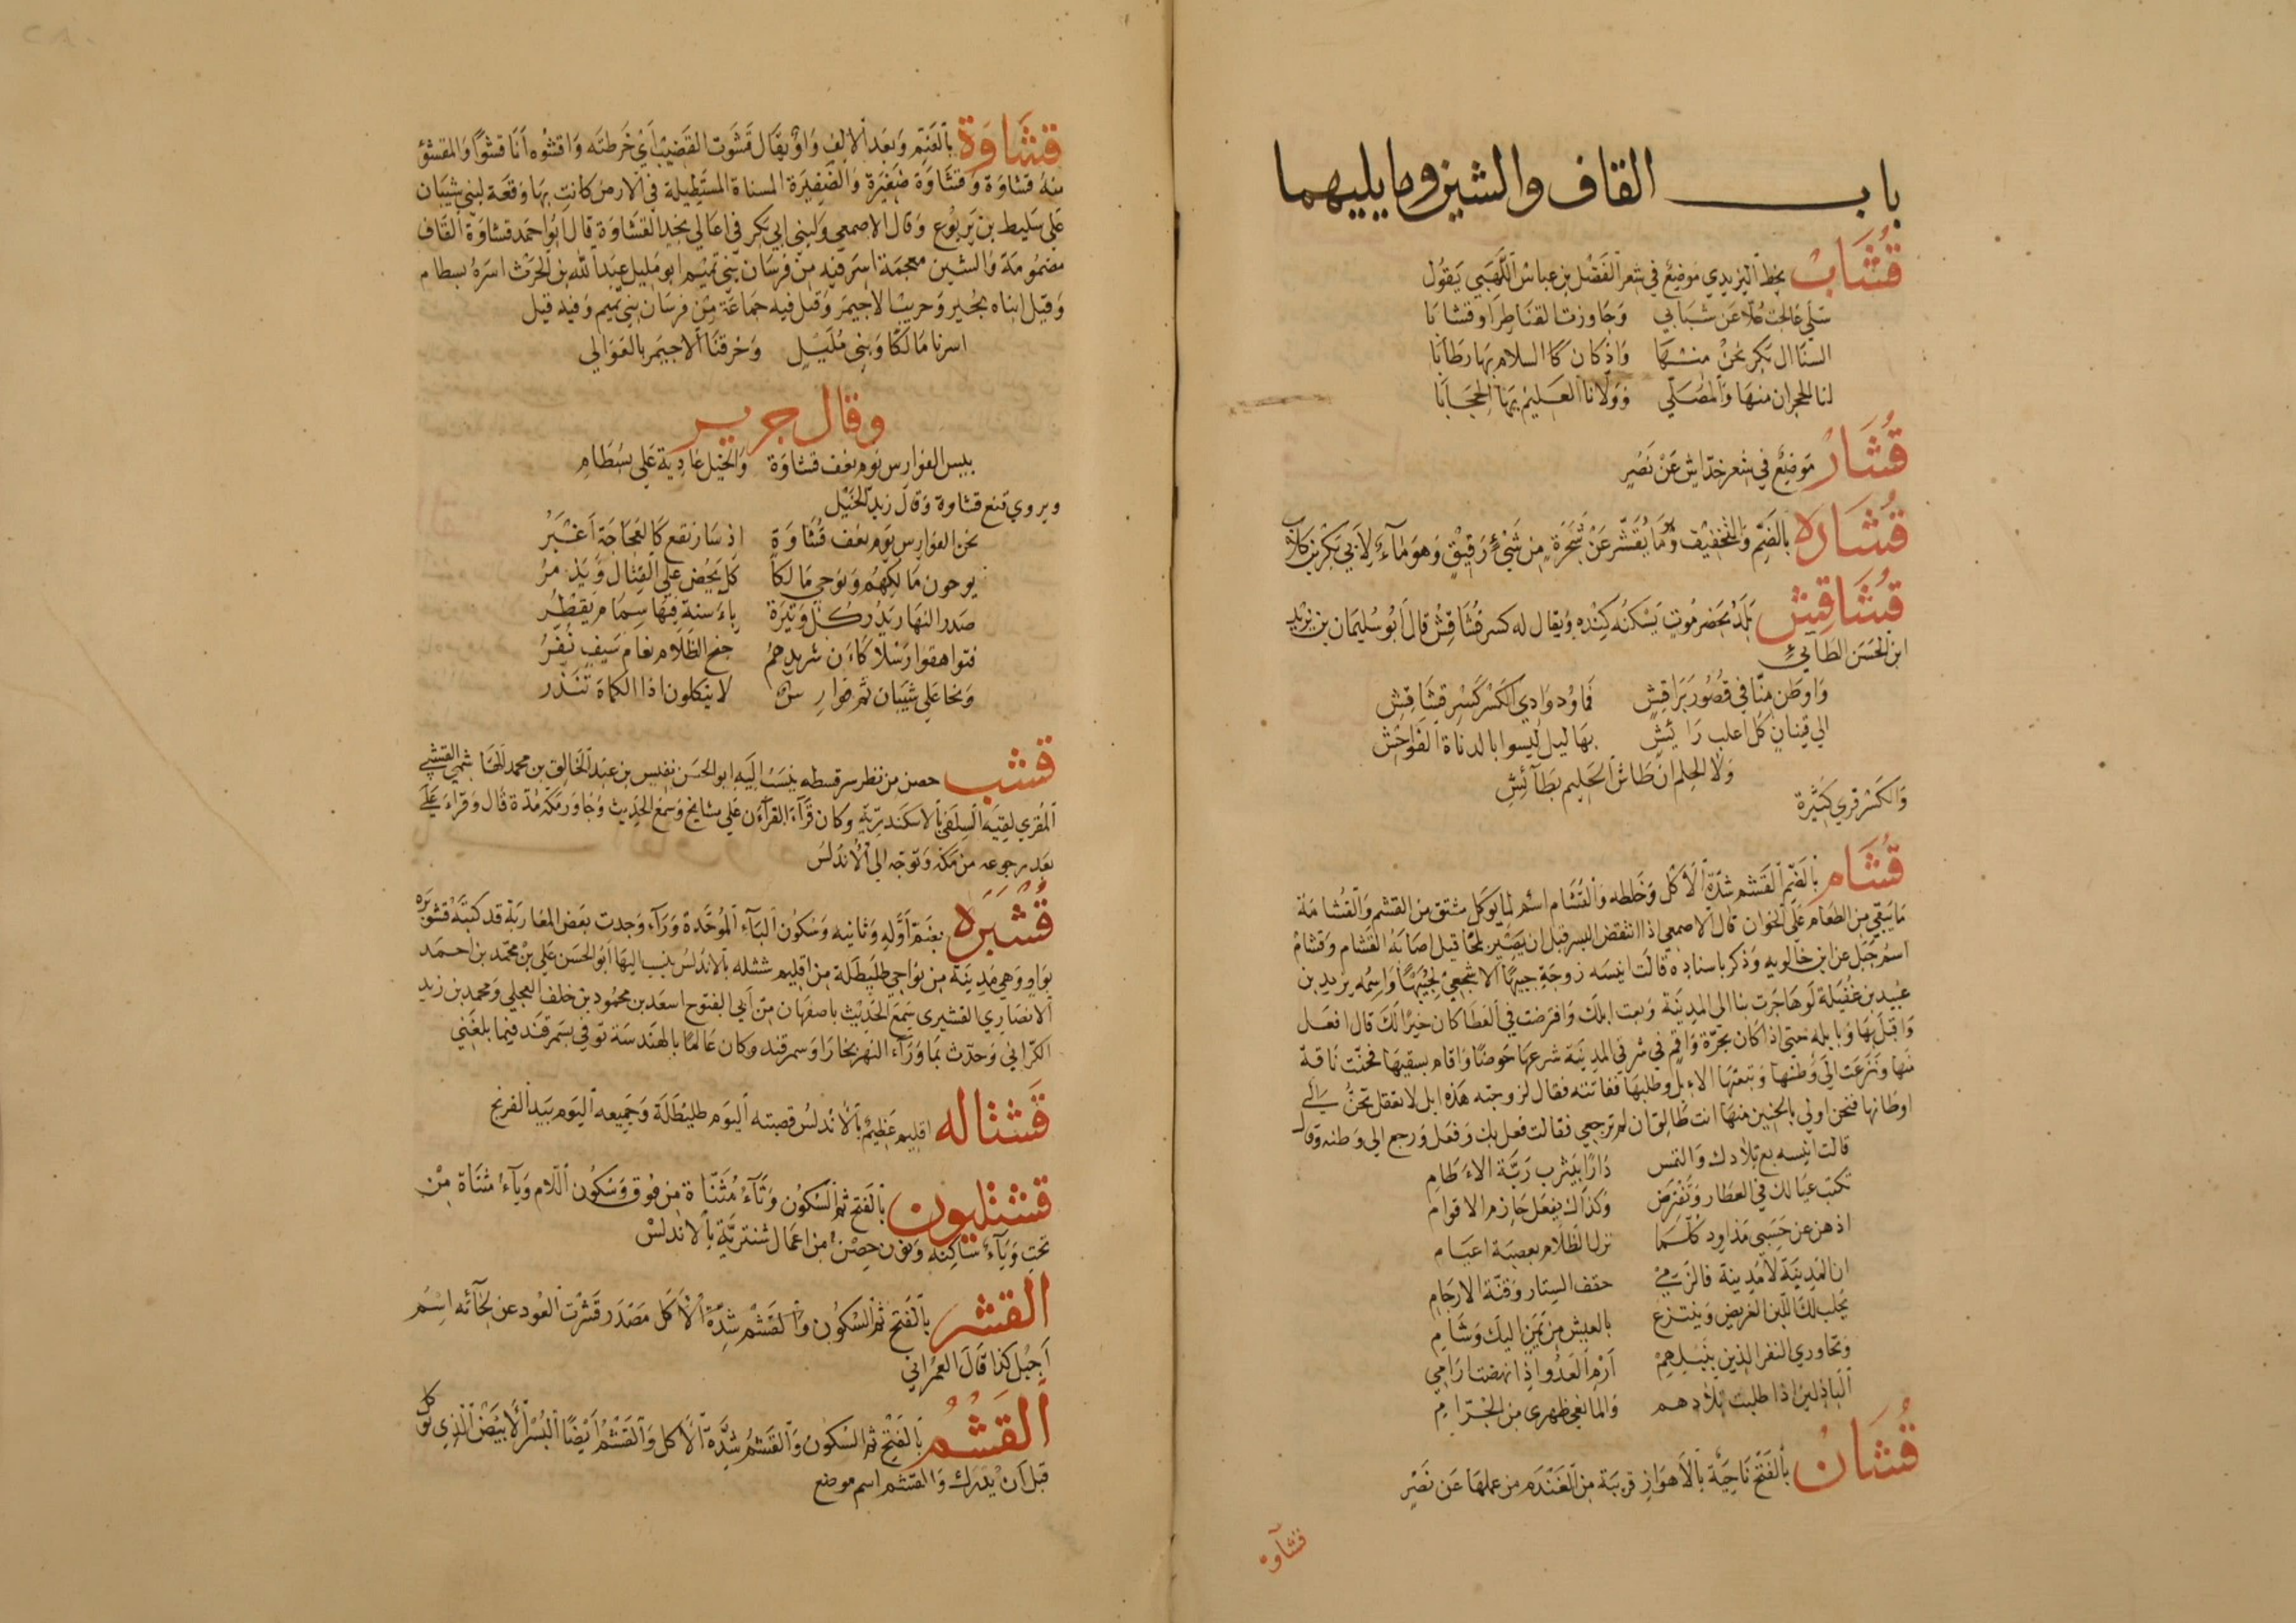 باب القاف والشين وما يليهما
قُشَابُ بخط اليزيدي موضع في شعر الفضل بن عباس اللهبي يقول
سلي عالجت علا عن شبابي وجاوزت القناطر او قشابا
السنا ال بكر نحن منها واذ كان السلام بها رطابا
لنا الحجران منها والمصلى وولانا العليم بها الحجابا
قُشَار موضع في شعر خداش عن نصير
قُشَاره بالضم والتخفيف وهو ما يُقشر عن شجرة من شيء رقيق وهو ماء لابي بكر بن كلاب
قُشَاقِش بلد بحضرموت يسكنه كنده ويقال له كسر قُشَاقِش قال ابو سليمان بن يزيد
ابن الحسن الطائي
واوطن منا في قصور براقش فما ود وادي الكسر كسر قشاقش
الى قينان كل اغلب رائش بهاليل ليسوا بالدناة الفواحش
ولا الحلم ان طاش الحليم بطائش
والكسر قرى كثيرة
قُشَام بالضم القشم شدة الاكل وخلطه والقشام اسم لما يوكل مشتق من القشم والقشامة
ما يبقى من الطعام على الخوان قال الاصمعي اذا انتفض البسر قبل ان يصير بلحا قيل اصابه القشام وقشام
اسم جبل عن ابن خالويه وذكر باسناده قالت انيسه زوجة جبيها الاشجعي لجبيها واسمه يزيد بن
عبيد بن غفيلة لو هاجرت بنا الى المدينة وبعت ابلك وافترضت في العطا كان خيرا لك قال افعل
واقبل بها وبابله حتى اذا كان بحرة واقم في شرقي المدينة شرعها حوضا واقام يسقيها فحنت ناقة
منها ونزعت الى وطنها وتبعتها الابل وطلبها ففاتته فقال لزوجته هذه ابل لا تعقل تحن الى
اوطانها فنحن اولى بالحنين منها انت طالق ان لم ترجعي فقالت فعل بك وفعل ورجع الى وطنه وقال
قالت انيسه بع تلادك والتمس دارا بيثرب ربة الاءطام
تكتب عيالك في العطا وتفترض وكذاك يفعل حازم الاقوام
اذ هن عن حسبي مذاود كلما نزل الظلام بعصبة اعتام
ان المدينة لا مدينة فالزمي حقف الستار وقنة الارجام
يجلب لك اللبن الغريض وينتزع بالعيش من يمن اليك وشام
وتجاوري النفر الذين بنبلهم ارم العدو اذا نهضت ارامي
الباذلين اذا طلبت بلادهم والمانعي ظهري من الجرام
قُشَان بالفتح ناحية بالاهواز قريبة من الغندم من عملها عن نصير
قشاوه
قشاوة بالضم وبعد الالف واو يقال قشوت القضيب اي خرطته واقشوه انا قشوا والمقشو
منه قشاوة وقشاوة ضفيرة والضفيرة المسناة المستطيلة في الارض كانت بها وقعة لبني شيبان
على سليط بن يربوع وقال الاصمعي ولبني ابي بكر في اعالي نجد القشاوة قال ابو احمد قشاوة القاف
مضمومة والشين معجمة اسر فيه من فرسان بني تميم ابو مليل عبد الله بن الحرث اسره بسطام
وقيل ابناه بجير وحريبا لاحيمر وقتل فيه جماعة من فرسان بني تميم وفيه قيل
اسرنا مالكا وبني مليل وخرقنا الاحيمر بالعوالي
وقال جرير
بيس الفوارس يوم نعف قشاوة والخيل عادية على بسطام
ويروي قنع قشاوة وقال زيد الخيل
نحن الفوارس يوم نعف قُشَاوة اذ ثار نقع كالعجاجة اغبر
يوحون مالكهم ونوحي مالكا كل يحض على القتال ويذمر
صدر النهار يدر كل وتيرة باءسنة فيها سمام يقطر
فتواهقوا رسلا كاءن شريدهم جنح الظلام نعام سيف نفر
ونحا على شيبان ثم فوارس لا ينكلون اذا الكماة تنذر
قشب حصن من نظر سرقسطه ينسب اليه ابو الحسن نفيس بن عبد الخالق بن محمد الهاشمي القشبي
المقري لقيه السلفي بالاسكندرية وكان قراء القراءن على مشايخ وسمع الحديث وجاور مكة مدة قال وقراء علي
بعد رجوعه من مكة وتوجه الى الاندلس
قُشُبَرَه بضم اوله وثانيه وسكون الباء الموحدة وراء وجدت بعض المغاربة قد كتبه قشوبره
بواو وهي مدينة من نواحي طليطلة من اقليم ششله بالاندلس ينسب اليها ابو الحسن علي بن محمد بن احمد
الانصاري القشيري سمع الحديث باصفهان من ابي الفتوح اسعد بن محمود بن خلف العجلي ومحمد بن زيد
الكراني وحدث بما وراء النهر بخارا وسمرقند وكان عالما بالهندسة توفي بسمرقند فيما بلغني
قَشْتَاله اقليم عظيم بالاندلس قصبته اليوم طليطلة وجميعه اليوم بيد الفرنج
قشتليون بالفتح ثم السكون وتاء مثناة من فوق وسكون اللام وياء مثناة من
تحت وياء ساكنه ونون حصن من اعمال شنترية بالاندلس
القشر بالفتح ثم السكون والقشم شدة الاكل مصدر قشرت العود عن لحائه اسم
اجبل كذا قال العمراني
اَلقَشْمُ بالفتح ثم السكون والقشم شدة الاكل والقشم ايضا البسر الابيض الذي يوكل
قبل ان يدرك والقشم اسم موضع